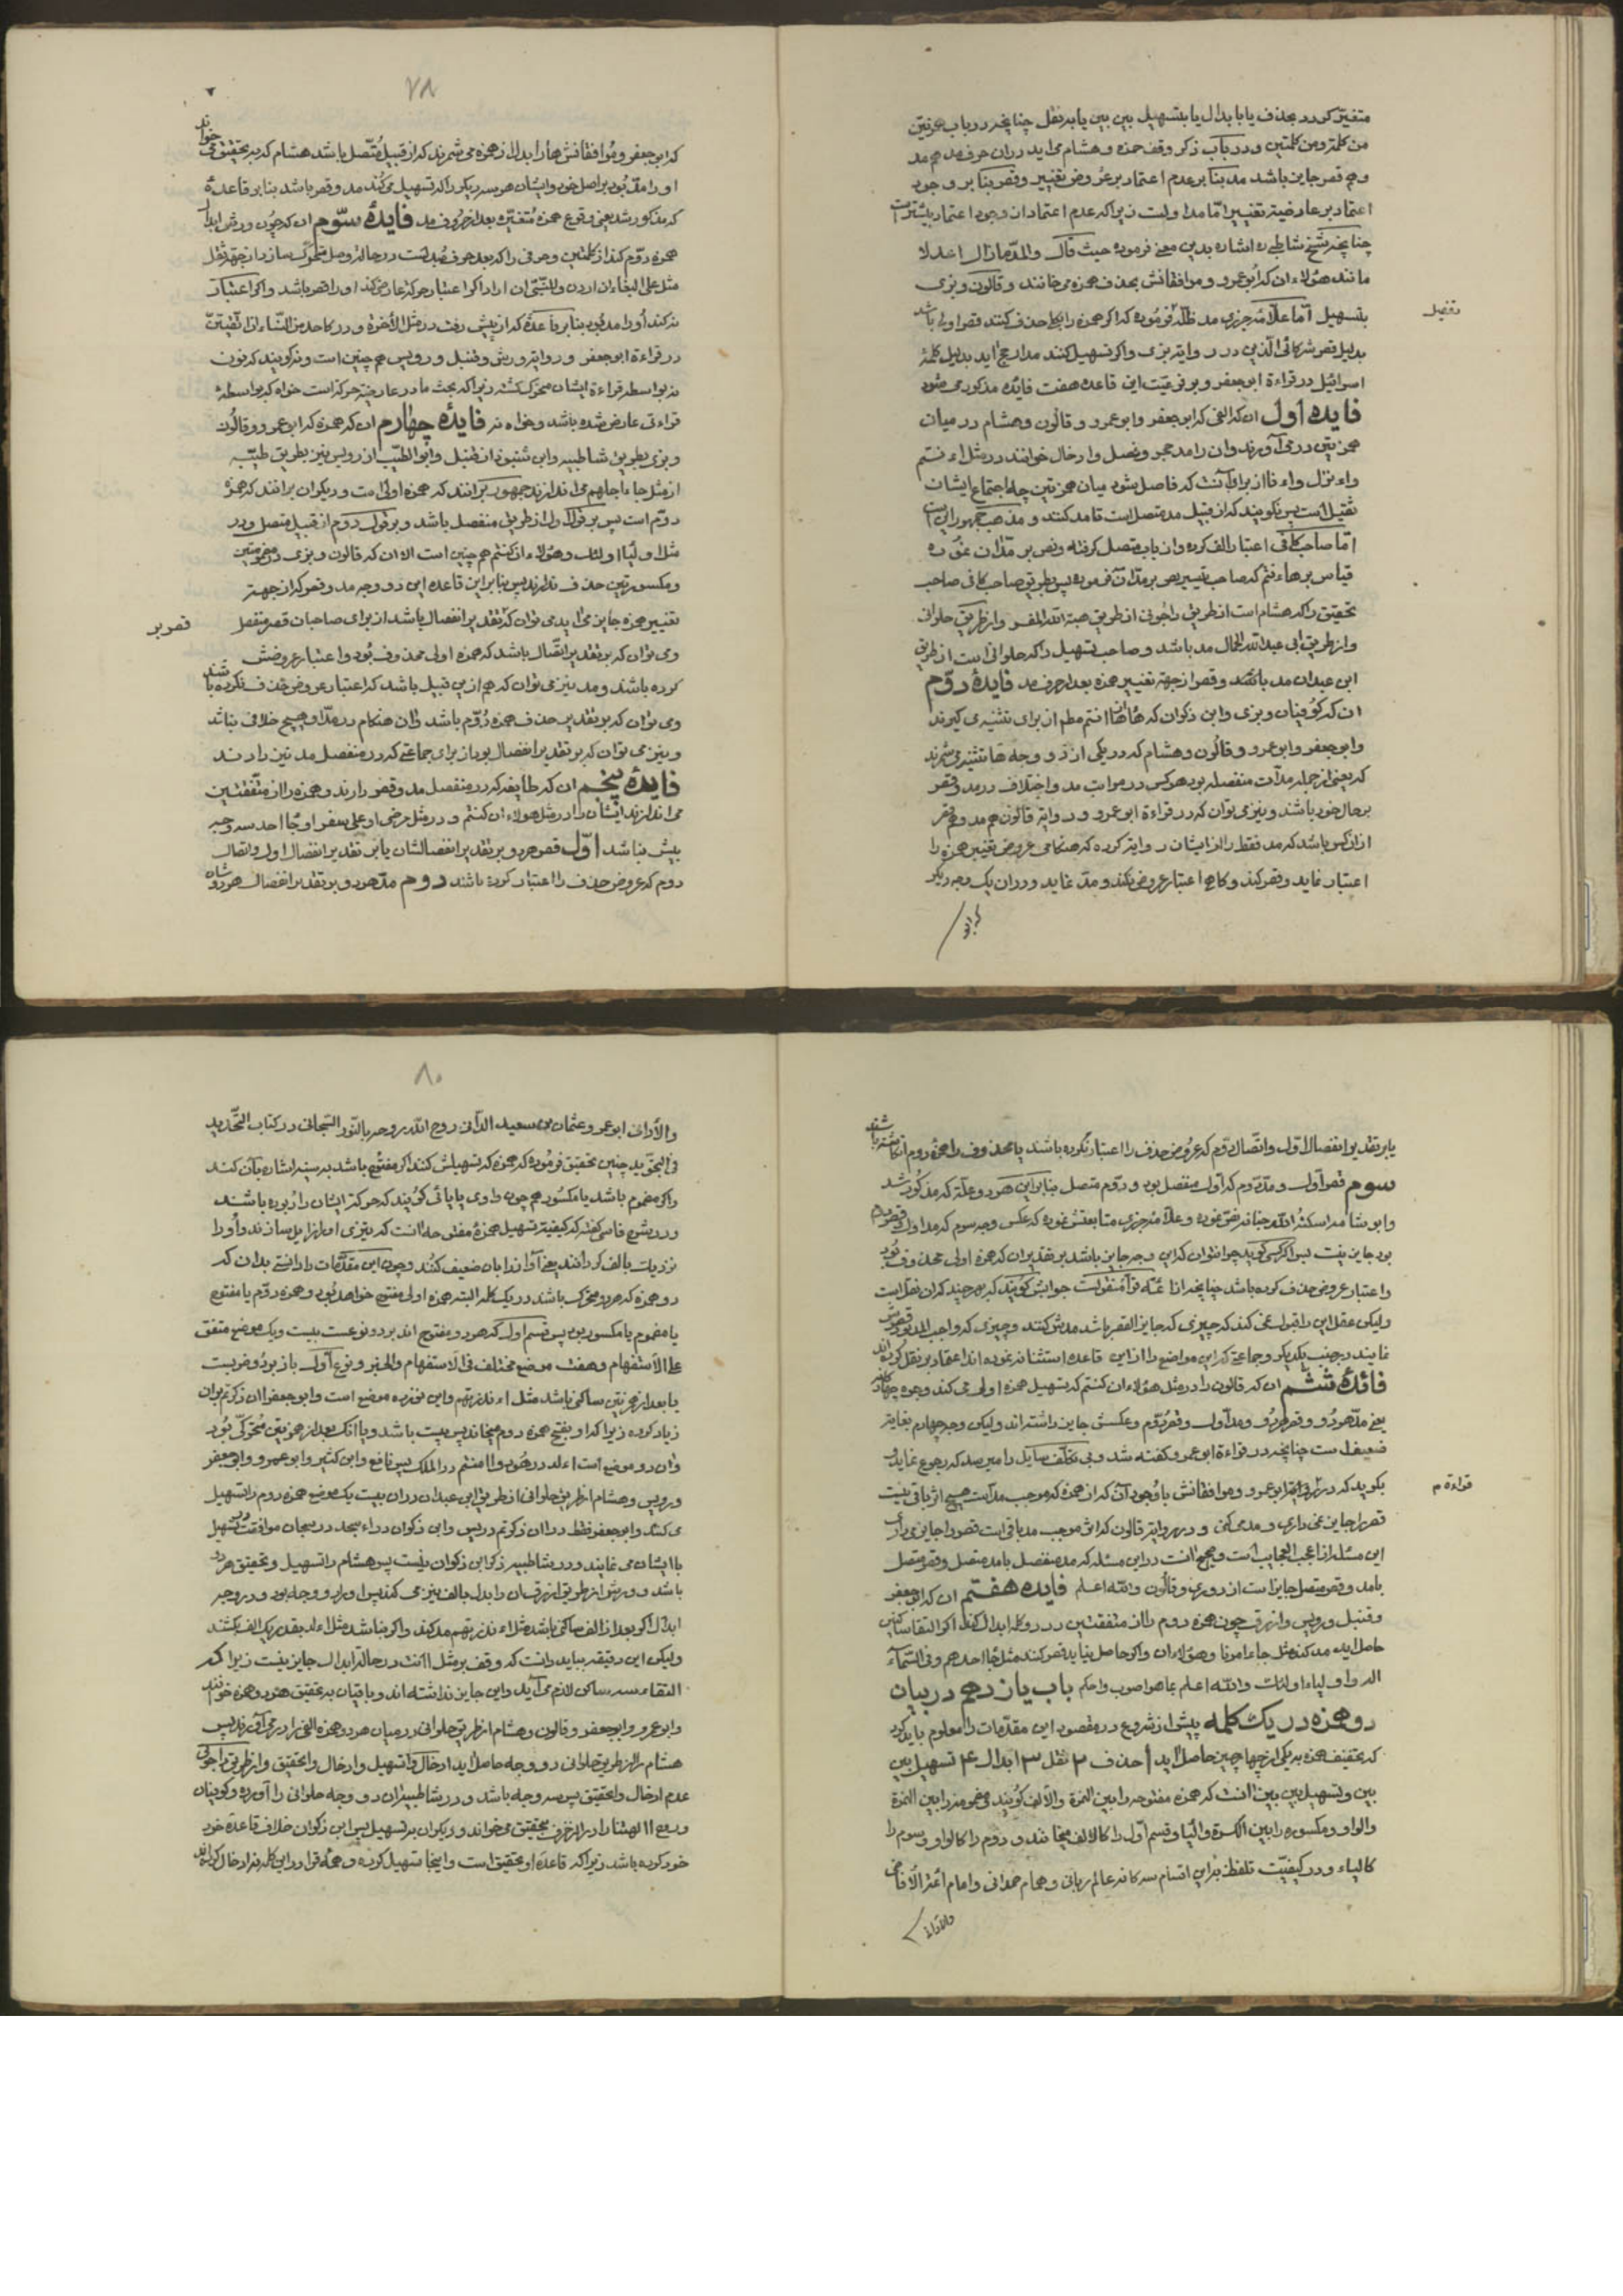 متغیّر گردد بحذف یا بابدال یا بتسهیل بین بین یا بنقل چنانچه در باب همزتین
من کلمة و من کلمتین و در باب ذکر وقف حمزه و هشام می اید در ان حرف مد هم مد
و هم قصر جایز باشد مد بنا بر عدم اعتماد بر عروض تغییر و قصر بنا بر وجود
اعتماد بر عارضیة تغییر امّا مد اولیت زیرا که عدم اعتماد از وجود اعتماد بیشترست
چنانچه شیخ شاطبی ره اشاره بدین معنی فرموده حیث قال والمدّ مازال اعدلا
مانند هؤلاء ان که ابو عمرو و موافقانش بحذف همزه می خانند و قالون و بزی
بتسهیل امّا علّامه جزری مد ظلّه فرموده که اگر همزه را بکلی حذف کنند قصر اولی باشد
تفصیل
بدلیل قصر شرکائی الّذین در روایة بزی و اگر تسهیل کنند مد ارجح اید بدلیل کلمهٔ
اسرائیل در قراءة ابو جعفر و بر فرعیّت این قاعده هفت فایده مذکور می شود
فایده اول ان که الفی که ابو جعفر و ابو عمرو و قالون و هشام در میان
همزتین در می آورند و ان را مد حجر و فصل و ادخال خوانند در مثل اءنتم
واءنزل واءفا از برای آنست که فاصل بشود میان همزتین چه اجتماع ایشان
ثقیل است پس نگویند که از قبیل مد متصل است تا مد کنند و مذهب جمهور این است
امّا صاحب کافی اعتبار الف کرده و از باب متصل گرفته و نص بر مدّ ان نموده
قیاس بر هاءنتم که صاحب تیسیر نص بر مدّ ان فرموده پس بطریق صاحب کافی صاحب
تحقیق را که هشام است از طریق داجونی از طریق هبة الله المفسر و از طریق حلوانی
و از طریق ابی عبد الله الجمال مد باشد و صاحب تسهیل را که حلوانی است از طریق
ابن عبدان مد باشد و قصر از جهة تغییر همزه بعد از حرف مد فایدهٔ دوّم
ان که کوفیان و بزی و ابن ذکوان که ها را در هاانتم مطم از برای تنبیه می گیرند
و ابو جعفر و ابو عمرو و قالون و هشام که در یکی از دو وجه ها تنبیه می شمرند
که یعنی از جمله مدّات منفصله بود هر کس در مراتب مد و اختلاف در مد و قصر
بر حال خود باشد و نیز می توان که در قراءة ابو عمرو و در روایة قالون هم مد و هم قصر
از ان کس باشد که مد فقط را از ایشان روایة کرده که هنگامی عروض تغییر همزه را
اعتبار نماید و قصر کند و گاهی اعتبار عروض نکند و مدّ نماید و در ان یک وجه دیگر
که ابو
۷۸
که ابو جعفر و موافقانش ها را بدل از همزه می شمرند که از قبیل متّصل باشد هشام که بتحقیق می خواند
او را مدّ بود بر اصل خود و ایشان هر سه دیگر را که تسهیل می کنند مد و قصر باشد بنا بر قاعدهٔ
که مذکور شد یعنی وقوع همزه متغیّره بعد از حرف مد فایدهٔ سوّم ان که چون ورش ابدال
همزه دوّم کند از کلمتین و حرفی را که بعد حرف مبدلست در حالة وصل متحرک سازد از جهة نقل
مثل علی البغاء ان اردن و للنّبیّ ان اراد اگر اعتبار حرکة عارضی کند او را قصر باشد و اگر اعتبار
نکند او را مد بود بنا بر قاعدهٔ که از پیش رفت در مثل الآخرة و در کاحد من النّساء ان اتّقیتنّ
در قراءة ابو جعفر و روایة ورش و قنبل و رویس هم چنین است و نگویند که نون
نه بواسطه قراءة ایشان متحرک گشته زیرا که بحث ما در عارضیة حرکة است خواه که بواسطهٔ
قراءتی عارض شده باشد و خواه نه فایدهٔ چهارم ان که همزه که ابو عمرو و قالون
و بزی بطریق شاطبیه و ابن شنبوذ از قنبل و ابو الطیّب از رویس نیز بطریق طیّبه
از مثل جاء اجلهم می اندازند جمهور برانند که همزه اولی است و دیگران برانند که همزهٔ
دوّم است پس بر قول اول از طریق منفصل باشد و بر قول دوّم از قبیل متصل و در
مثل اولیاء اولئک و هؤلاء ان کنتم هم چنین است الا ان که قالون و بزی در مضمومتین
و مکسورتین حذف ندارند پس بنا بر این قاعده این دو وجه مد و قصر که از جهة
تغییر همزه جایز می اید می توان که بتقدیر انفصال باشد از برای صاحبان قصر منفصل
قصر بر
و می توان که بر تقدیر اتّصال باشد که همزه اولی محذوف بود و اعتبار عروضش
کرده باشند و مد نیز می توان که هم از این قبیل باشد که اعتبار عروض حذف نکرده باشند
و می توان که بر تقدیر حذف همزه دوّم باشد و ان هنگام در مدّ او هیچ خلاف نباشد
و نیز می توان که بر تقدیر انفصال بود از برای جماعتی که در منفصل مد نیز دارند
فایدهٔ پنجم ان که طایفه که در منفصل مد و قصر دارند و همزه را از متّفقتین
می اندازند ایشان را در مثل هؤلاء ان کنتم و در مثل مرضی او علی سفر او جاء احد سه وجه
بیش نباشد اوّل قصر هردو بر تقدیر انفصالشان یا بر تقدیر انفصال اول و اتصال
دوم که عروض حذف را اعتبار کرده باشند دوم مدّ هردو بر تقدیر انفصال هردوشان
یا بر تقدیر انفصال اول و اتّصال دوّم که عروض حذف را اعتبار نکرده باشند یا محذوف را همزه دوم انگاشته باشند
سوم قصر اول و مدّ دوم که اول منفصل بود و دوم متصل بنا بر این هردو علّة که مذکور شد
و ابو شامه اسکنه الله جنانه نص نموده و علّامه جزری متابعتش نموده که عکس وجه سوم که مد اول و قصر دوم
بود جایز نیست پس اگر کسی گوید چرا نتوان که این وجه جایز باشد بر تقدیر ان که همزه اولی محذوف بود
و اعتبار عروض حذف کرده باشد چنانچه از ائمّه قرآء منقولست جوابش گویند که هرچند که ان نقل است
ولیکن عقل این را قبول نمی کند که چیزی که جایز القصر باشد مدش کنند و چیزی که واجب المد بود قصرش
نمایند در جنب یکدیگر و جماعتی که این مواضع را از این قاعده استثنا نه نموده اند اعتماد بر نقل کرده اند
فائدهٔ ششم ان که قالون را در مثل هؤلاء ان کنتم که تسهیل همزه اولی می کند وجوه چهارگانه
یعنی مدّ هردو و قصر هردو و مد اول و قصر دوّم و عکسش جایز داشته اند ولیکن وجه چهارم بغایة
ضعیفست چنانچه در قراءة ابو عمرو گفته شد و بی تکلّف سایل را میرسد که رجوع نماید و
بگوید که در ابو عمرو و موافقانش باوجود آن که از همزه که موجب مد است هیچ اثر باقی نیست
قراءة م
قصر را جایز نمی داری و مد می کنی و در روایة قالون که اثر موجب مد باقی است قصر را جایز می داری
این مسئله از اعجب العجایب است و صحیح انست در این مسئله که مد منفصل با مد متصل و قصر متصل
با مد و قصر متصل جایز است از دوری و قالون والله اعلم فایده هفتم ان که ابو جعفر
و قنبل و رویس و ازرق چون همزه دوم را از متفقتین در دو کلمه ابدال کنند اگر التقا ساکنین
حاصل اید مد کنند مثل جاء امرنا و هؤلاء ان و اگر حاصل نیاید قصر کنند مثل جاء احدهم و فی السّماء
اله و اولیاء اولئک والله اعلم بما هو اصوب و احکم باب یازدهم در بیان
دو همزه در یک کلمه پیش از شروع در مقصود این مقدّمات را معلوم باید کرد
که تخفیف همزه به یکی از چهار چیز حاصل اید ۱ حذف ۲ نقل ۳ ابدال ۴ تسهیل بین
بین و تسهیل بین بین انست که همزه مفتوحه را بین الهمزة والألف گویند مضمومه را بین الهمزة
والواو و مکسوره را بین الکسرة والیا و قسم اول را کالالف میخانند و دوم را کالواو و سوم را
کالیاء و در کیفیّت تلفظ براین اقسام سه گانه عالم ربانی و همام همدانی و امام ائمّة الآفاقی
والأدانی
۸۰
والأدانی ابو عمرو عثمان بن سعید الدّانی روح الله روحه بالنّور السّبحانی در کتاب التّحدید
فی التجوید چنین تحقیق فرموده که همزه که تسهیلش کنند اگر مفتوح باشد بسینه اشاره بآن کنند
و اگر مضموم باشد یا مکسور هم چون واوی یا یائی گویند که حرکة ایشان را ربوده باشند
و در شرح فاسی گفته که کیفیة تسهیل همزهٔ مفتوحه انست که تیزی او را زایل سازند و او را
نزدیک بالف گردانند یعنی آواز را بان ضعیف کنند و چون این مقدّمات را دانستی بدان که
دو همزه که هردو متحرک باشد در یک کلمه البته همزه اولی مفتوح خواهد بود و همزه دوّم یا مفتوح
یا مضموم یا مکسور بود پس قسم اول که هردو مفتوح اند بر دو نوعست بیست و یک موضع متفق
علی الاستفهام و هفت موضع مختلف فی الاستفهام والخبر و نوع اول باز بر دو ضربست
یا بعد از همزتین ساکن باشد مثل اءنذرتهم و این نوزده موضع است و ابو جعفر اان ذکرتم بر ان
زیاد کرده زیرا که او بفتح همزه دوم میخاند پس بیست باشد و یا انک بعد از همزتین متحرک بود
و ان دو موضع است اءلد در هود و اامنتم در الملک پس نافع و ابن کثیر و ابو عمرو و ابو جعفر
و رویس و هشام از طریق حلوانی از طریق ابن عبدان در ان بیست یک موضع همزه دوم را تسهیل
می کنند و ابو جعفر فقط در اان ذکرتم در یس و ابن ذکوان در اءسجد در سبحان موافقت تسهیل
باایشان می نمایند و در شاطبیه ذکر ابن ذکوان نیست پس هشام را تسهیل و تحقیق هردو
باشد و ورش از طریق ازرق ان را بدل بالف نیز می کند پس او را دو وجه بود و در وجه
ابدال اگر بعد از الف ساکن باشد مثل اءنذرتهم مد کند و اگر نباشد مثل اءلد بقدر یک الف کشند
ولیکن این دقیقه بباید دانست که وقف بر مثل اانت در حالة ابدال جایز نیست زیرا که
التقاء سه ساکن لازم می آید و این جایز نداشته اند و باقیان به تحقیق هردو همزه خوانند
و ابو عمرو و ابو جعفر و قالون و هشام از طریق حلوانی در میان هردو همزه الفی را در می آورند پس
هشام را از طریق حلوانی دو وجه حاصل اید ادخال و تسهیل و ادخال و تحقیق و از طریق داجونی
عدم ادخال و تحقیق پس سه وجه باشد و در شاطبیه ان دو وجه حلوانی را آورده و کوفیان
و روح االهتنا را در الزخرف بتحقیق می خواند و دیگران به تسهیل پس ابن ذکوان خلاف قاعدهٔ خود
خود کرده باشد زیرا که قاعده او تحقیق است و اینجا تسهیل کرده و همّه قرا در این کلمه نه ادخال کرده اند